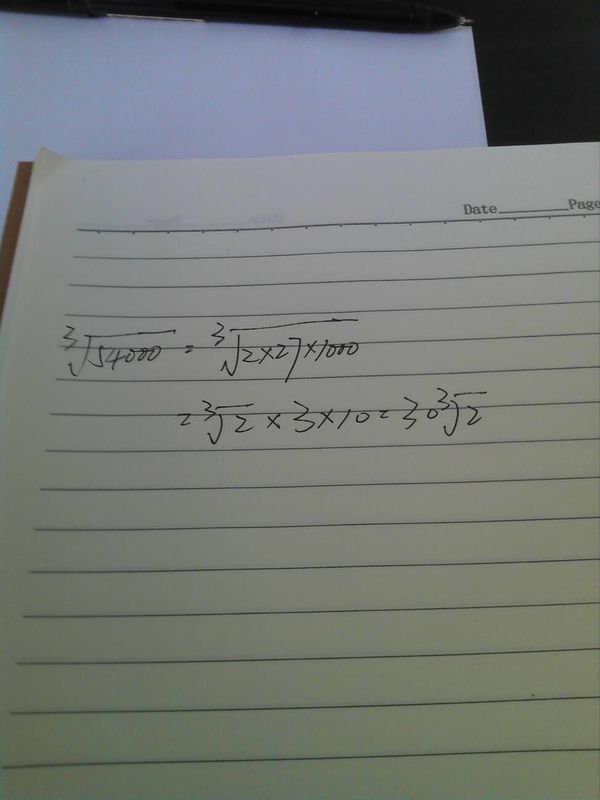 Date Page
∛54000 = ∛2×27×1000
= ∛2 × 3×10 = 30∛2